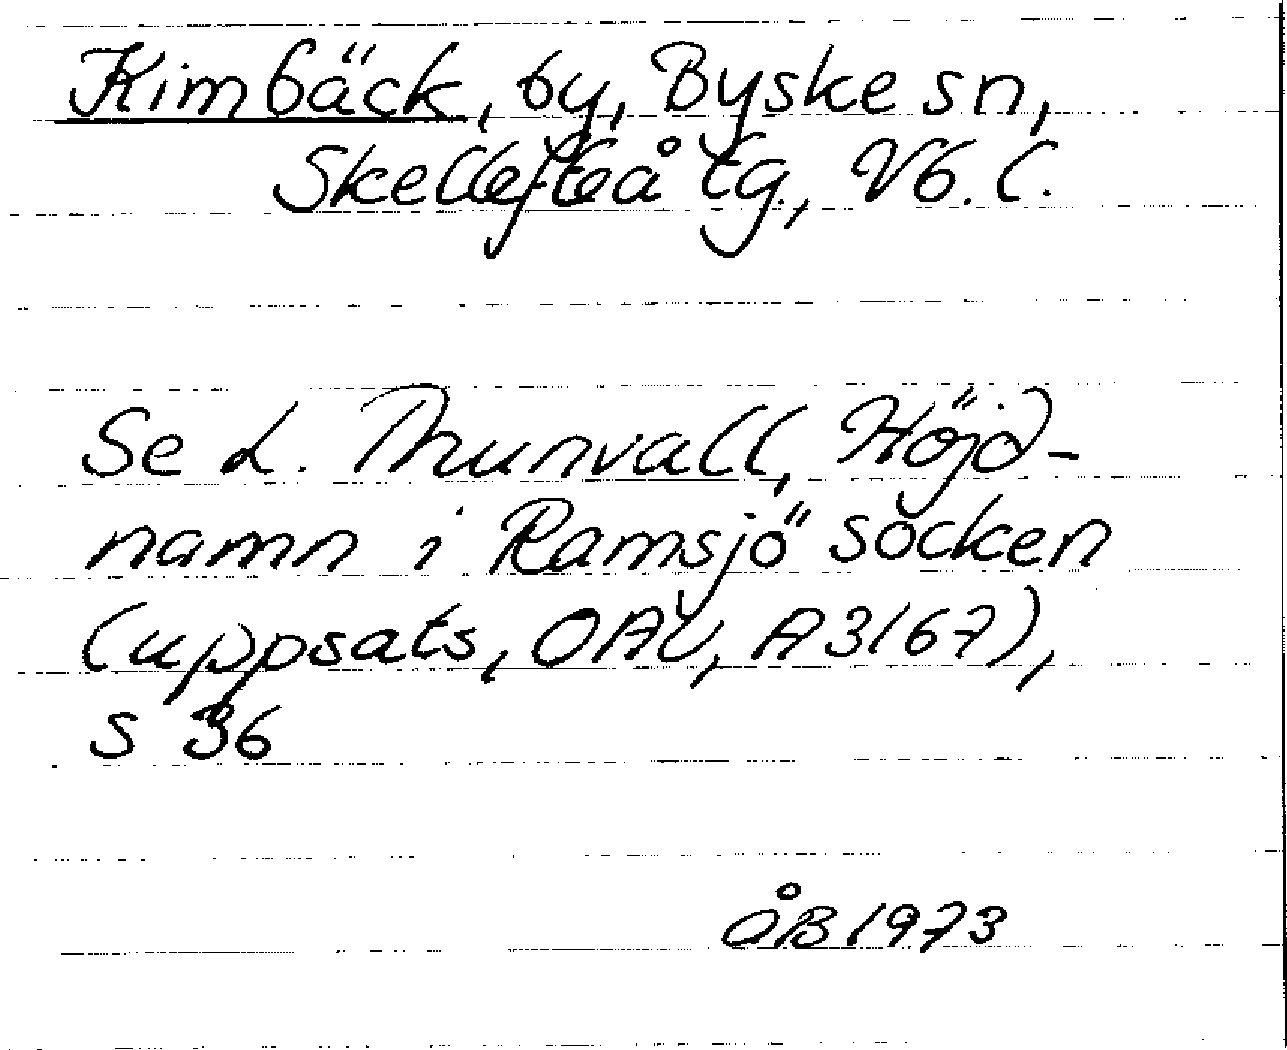 Kimbäck, by, Byske sn,
Skellefteå tg., Vb. l.
Se L. Thunvall, Höjd-
namn i Ramsjö socken
(uppsats, OAU, A3167),
s 36
ÅB 1973